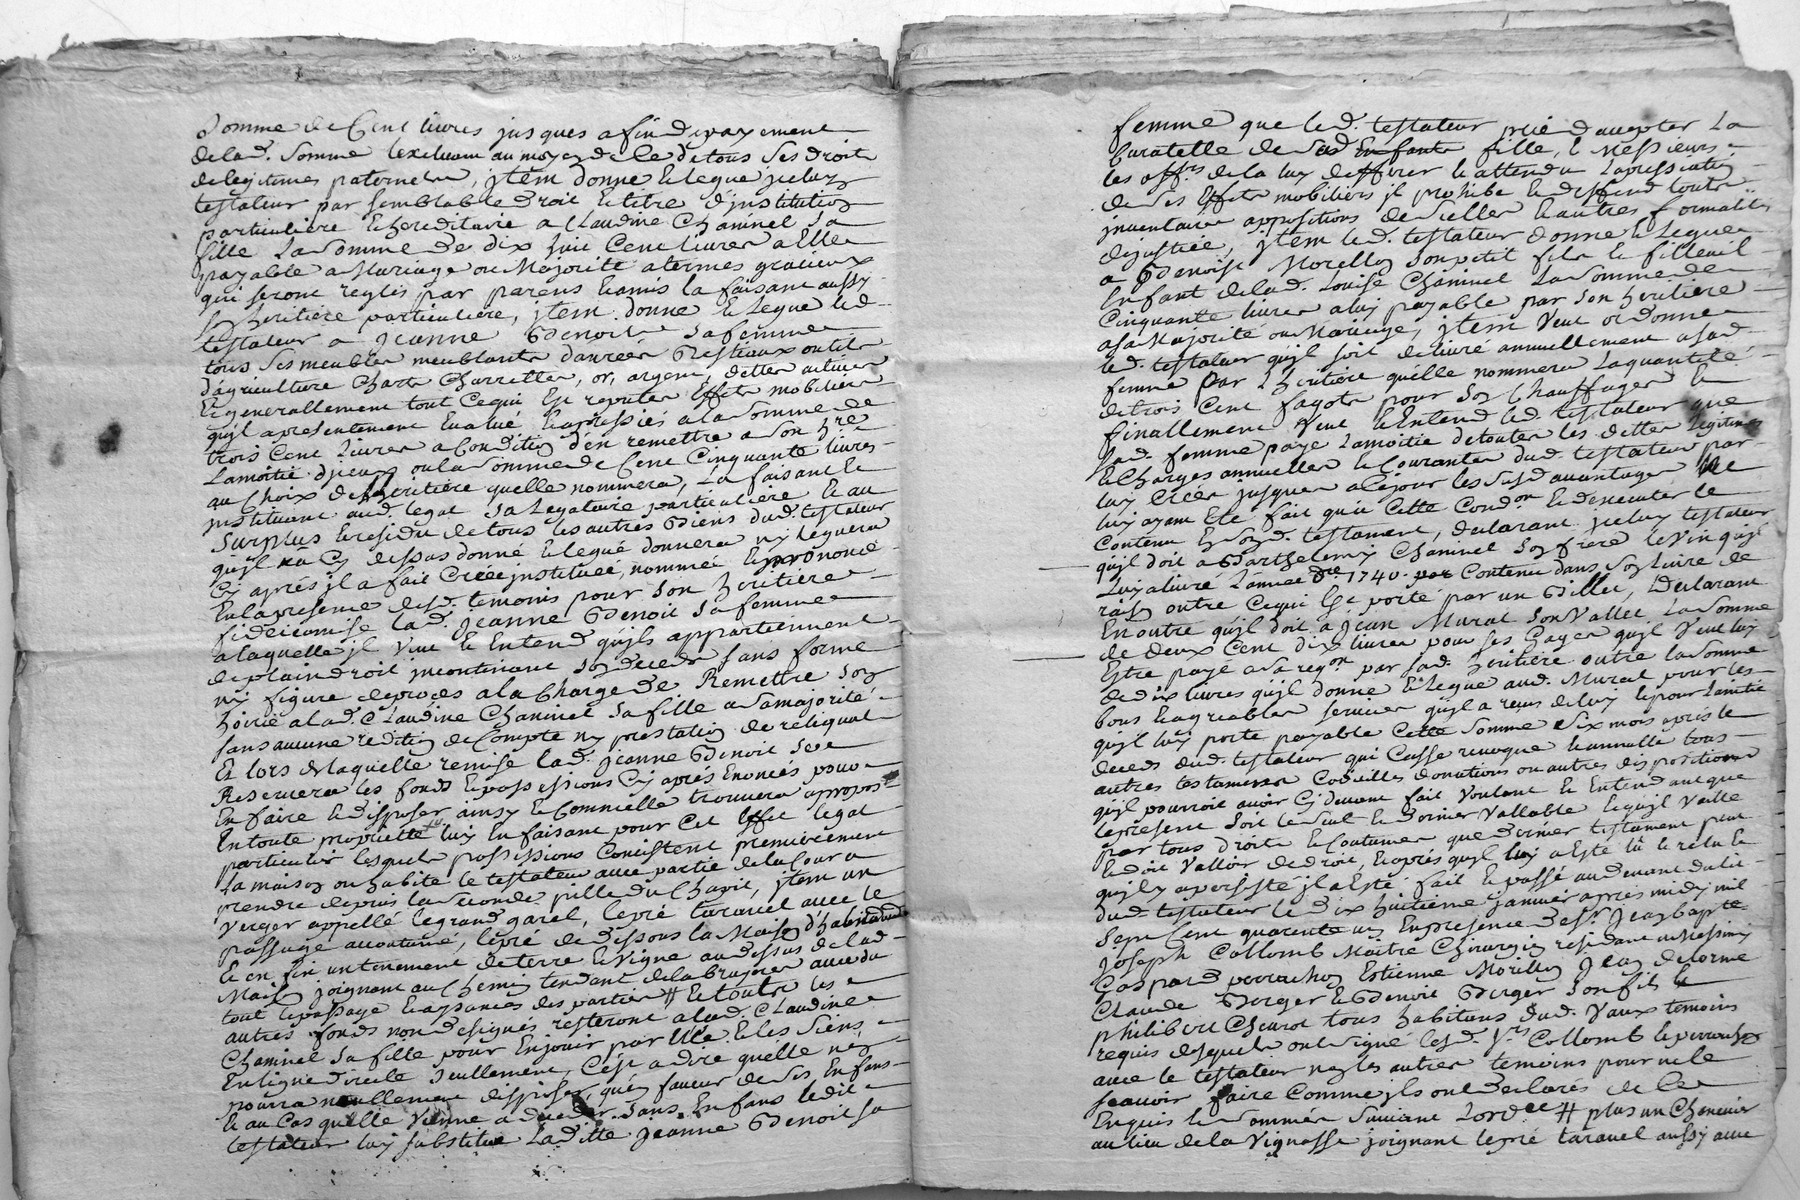 Somme de Cent livres jusques a fin de payement
de lad. Somme au moyen de ce de tous ses droit
de legitimes paternelles, jtem donne & legue jceluy
testateur par semblable droit & titre d'institution
particuliere & hereditaire a Claudine Chaninel sa
fille La Somme de dix huit Cent livres a Elle
payable a Mariage ou Majorité a termes gratieux
qui seront reglés par parens & amis la faisant aussy
heritiere particuliere, jtem donne & Legue led.
testateur a Jeanne Benoit sa femme
tous ses meubles meublants danrées Bestiaux outils
d'agriculture Chars Charrettes, or, argent, dettes actives
& generallement tout Cequi Est reputer Effets mobiliers
quil a presentement Evalué & apressiés a la Somme de
trois Cent Livres a Condition d'en remettre a son hre
Lamoitié d'jceux ou la Somme de Cent Cinquante livres
au Choix de L'heritiere quelle nommera, La faisant &
jnstituant aud. legat sa Legataire particuliere & au
Surplus & residu de tous les autres Biens dud. testateur
qu'jl n'a Cy dessus donné & legué donnera ny leguera
Cy aprés jl a fait Créée jnstituée, nommée & prononcé
En la presence desd. temoins pour son heritiere
fideicomise lad. Jeanne Benoit sa femme
a laquelle jl Veut & Entend qu'jls appartiennent
de plain droit jncontinant son deceds sans forme
ny figure de procés a la Charge de Remettre son
hoirie a lad. Claudine Chaninel sa fille a sa majorité
sans aucune reditions de Compte ny prestation de reliquat
Et lors de laquelle remise lad. Jeanne Benoit se
Reservera les fonds & possessions Cy aprés Enoncés pour
En faire & disposer ainsy & Comme Elle trouvera a propos
En toute proprietté luy En faisant pour Cet Effet legat
particulier lesquels possessions Consistent premierement
La maison ou habite le testateur avec partie de la Cour a
prendre depuis la seconde pille du Chapit, jtem un
Verger appellé legrand garel, le pré taravel avec le
passage accoutumé, lepré de dessous la Maison d'habitation
& en fin un tenement de terre & Vigne au dessus de lad.
Maison joignant au Chemin tendant de la bruyeres avec du
tout le passage & aisances des parties # & toutes les
autres fonds non designés resteront a lad. Claudine
Chaninel sa fille pour En jouir par Elle & les siens
En ligne directe seullement, C'est a dire quelle ne
pourra nullement disposer, qu'en faveur de ses Enfans
& au Cas quelle Vienne a deceder sans Enfans ledit
testateur luy substitue Laditte Jeanne Benoit sa
femme que led. testateur prie d'accepter La
Curatelle de sad fille, & Messieurs
les offrs de la luy defferer & attendu L'apressiation
de ses Effets mobiliers jl prohibe & deffend toutes
jnventaire appositions de scelles & autres formalités
de justice, jtem led. testateur donne & Legue
a Benoist Morellon son petit fils & filleuil
Enfant de lad. Louise Chaninel La Somme de
Cinquante livres a luy payable par son heritiere
a sa Majorité ou Mariage, jtem Veut ordonne
led. testateur qu'jl soit delivré annuellement a sad.
femme par L'heritiere qu'elle nommera Laquantité
de trois Cent fagots pour son Chauffage &
finallement Veut & Entend led. testateur que
sad. femme paye Lamoitié de toutes les dettes legitimes
& Charges annuelles & Courantes dud. testateur par
luy Créés jusques a Cejour les susd. avantages ne
luy ayant Eté fait qu'a Cette Condon & d'executer le
Contenu En son d. testament, declarant jceluy testateur
qu'jl doit a Barthelemy Chaninel son frere le Vin qu'jl
Luy a livré L'année dre 1740. Contenu dans son Livre de
raison outre Cequi Est porté par un Billet, Declarant
En outre qu'jl doit a Jean Murat Son Vallet La Somme
de deux Cent dix livres pour ses gages qu'jl Veut luy
Estre payé a sa reqon par sad. heritiere outre la Somme
de dix livres qu'jl donne & Legue aud. Murat pour les
bons & agreables services qu'jl a reçus de luy & pour L'amitié
qu'jl luy porte payable Cette Somme Six mois aprés le
deceds dud. testateur qui Casse revoque & annulle tous
autres testamens Codicilles donations ou autres dispositions
qu'jl pourroit avoir Cy devant fait Voulant & Entendant que
le present soit le seul & dernier Vallable & qu'jl Vaille
par tous droits & Coutumes que dernier testament peut
& doit Valloir de droit, & aprés qu'jl luy a Esté lû & relu &
qu'jl y a persisté jl a Esté fait & passé au devant du lit
dud. testateur le dix huitieme janvier aprés midy mil
Sept Cent quarente un En presence de Sr Jean bapte
Joseph Collomb Maitre Chirurgien residant a Messimy
Gaspard perrachon Estienne Morillon Jean delorme
Claude Berger & Benoit Berger son fils &
philibert tous habitans dud. Vaux temoins
requis desquels ont signé lesd. Srs Collomb & perrachon
avec le testateur non les autres temoins pour ne le
sçavoir faire Comme jls ont declarés de Ce
Enquis & sommés suivant L'ordce # plus un Chenevier
au lieu de la Vignasse joignant lepré taravel aussy avec